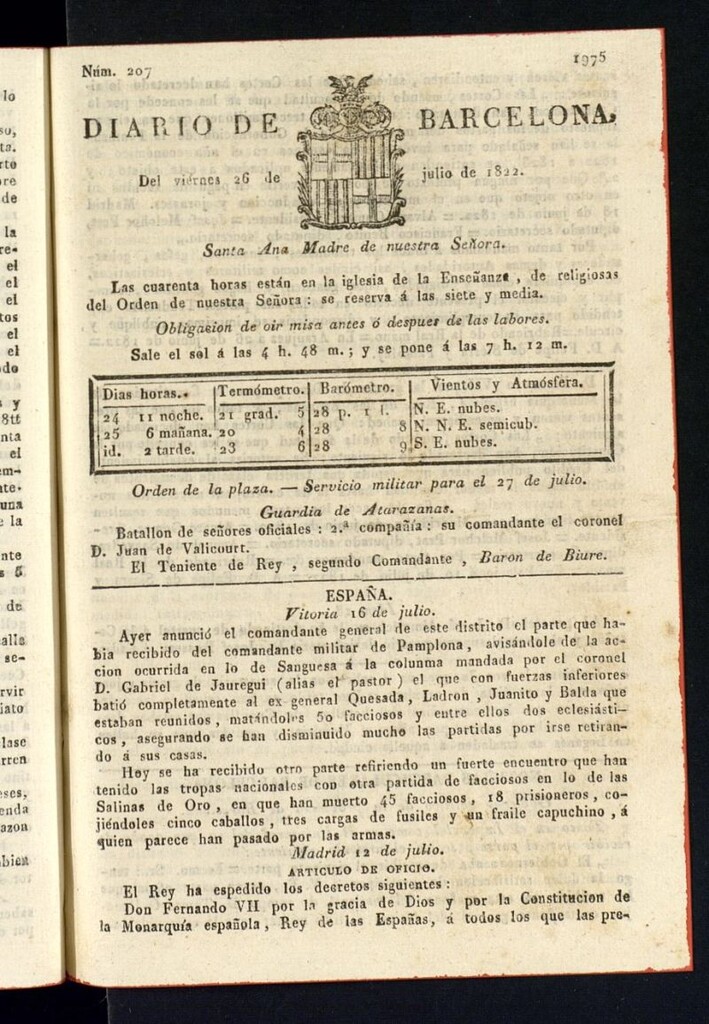 Núm. 207
1975
DIARIO DE BARCELONA,
Del viérnes 26 de julio de 1822.
Santa Ana Madre de nuestra Señora.
Las cuarenta horas están en la iglesia de la Enseñanza, de religiosas
del Orden de nuestra Señora: se reserva á las siete y media.
Obligasion de oir misa antes ó despues de las labores.
Sale el sol á las 4 h. 48 m.; y se pone á las 7 h. 12 m.
Dias horas. Termómetro. Barómetro. Vientos y Atmósfera.
24 11 noche. 21 grad. 5 28 p. 1 l. N. E. nubes.
25 6 mañana. 20 4 28 8 N. N. E. semicub.
id. 2 tarde. 23 6 28 9 S. E. nubes.
Orden de la plaza. — Servicio militar para el 27 de julio.
Guardia de Atarazanas.
Batallon de señores oficiales: 2.ª compañía: su comandante el coronel
D. Juan de Valicourt.
El Teniente de Rey, segundo Comandante, Baron de Biure.
ESPAÑA.
Vitoria 16 de julio.
Ayer anunció el comandante general de este distrito el parte que ha-
bia recibido del comandante militar de Pamplona, avisándole de la ac-
cion ocurrida en lo de Sanguesa á la colunma mandada por el coronel
D. Gabriel de Jauregui (alias el pastor) el que con fuerzas inferiores
batió completamente al ex-general Quesada, Ladron, Juanito y Balda que
estaban reunidos, matándoles 50 facciosos y entre ellos dos eclesiásti-
cos, asegurando se han disminuido mucho las partidas por irse retiran-
do á sus casas.
Hoy se ha recibido otro parte refiriendo un fuerte encuentro que han
tenido las tropas nacionales con otra partida de facciosos en lo de las
Salinas de Oro, en que han muerto 45 facciosos, 18 prisioneros, co-
jiéndoles cinco caballos, tres cargas de fusiles y un fraile capuchino, á
quien parece han pasado por las armas.
Madrid 12 de julio.
ARTICULO DE OFICIO.
El Rey ha espedido los decretos siguientes:
Don Fernando VII por la gracia de Dios y por la Constitucion de
la Monarquía española, Rey de las Españas, á todos los que las pre-